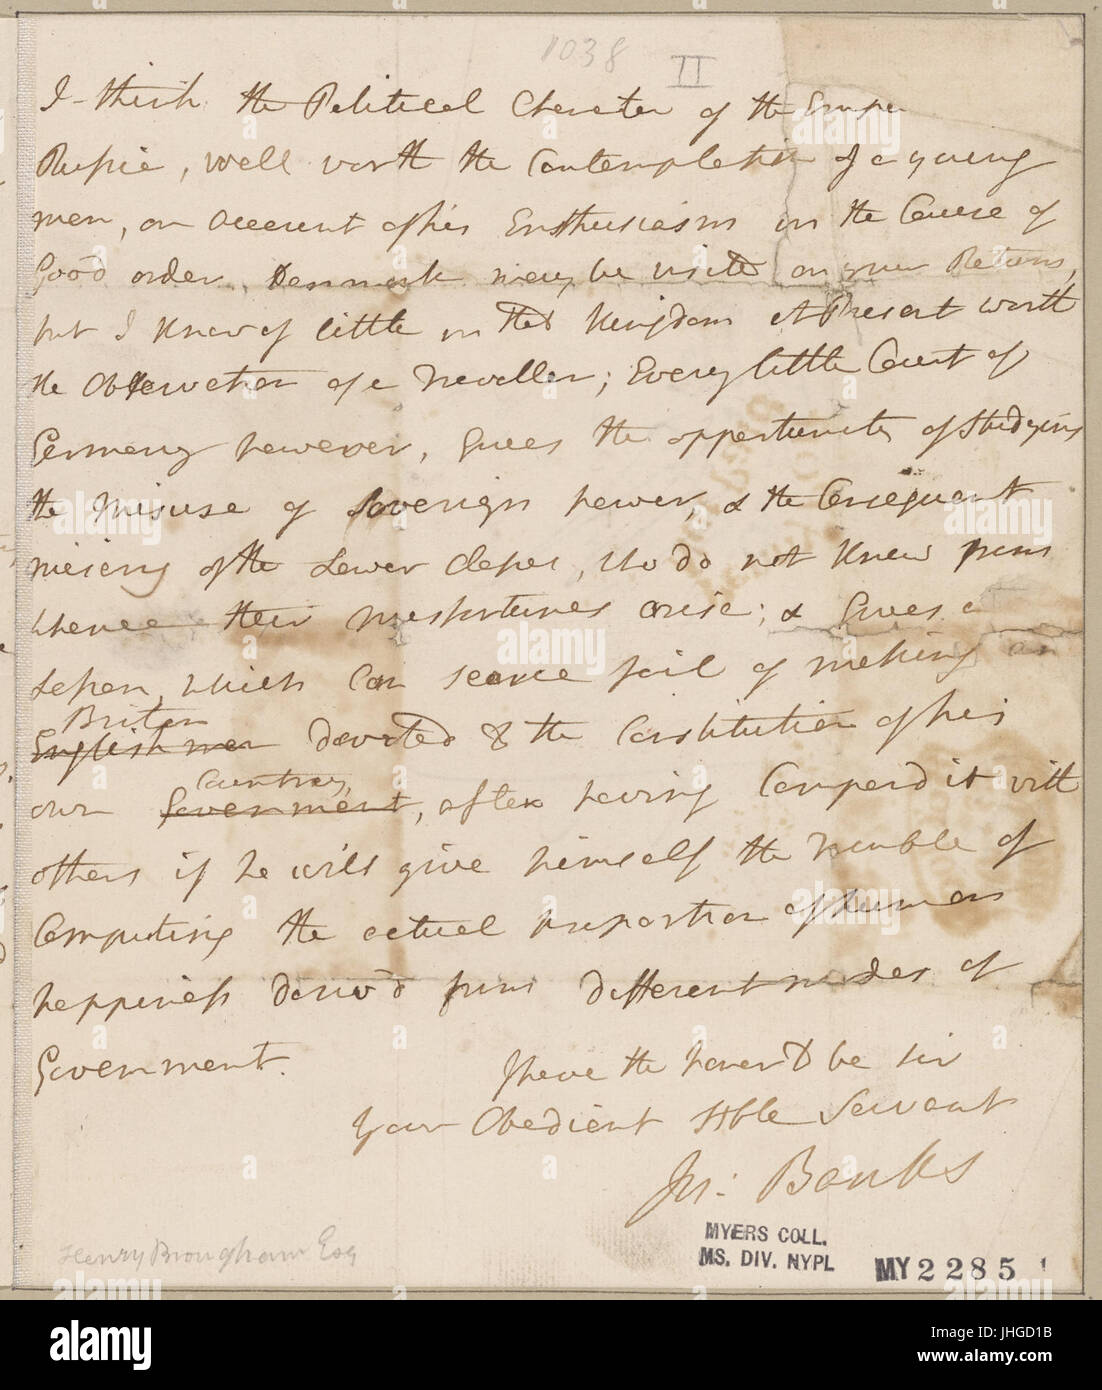 1038
II
I think the Political Character of the Empe
Russia, well worth the Contemplation of a young
man, on account of his Enthusiasm in the Cause of
Good order. Denmark may be visited on your Return,
but I know of little in that Kingdom at Present worth
the Observation of a traveller; Every little Court of
Germany however, gives the opportunity of Studying
the misuse of Sovereign power, & the Consequent
misery of the Lower Classes, who do not know from
whence their misfortunes arise; & Gives a
Lesson, which Can scarce fail of making an
Briton
Englishman devoted to the Constitution of his
Country,
own Government, after having Compard it with
others if he will give himself the trouble of
Computing the actual proportion of human
happiness deriv'd from different modes of
Government.
I have the honor to be Sir
Your Obedient Hble Servant
Jos: Banks
Henry Brougham Esq
MYERS COLL.
MS. DIV. NYPL
MY 2285
alamy
Image ID: JHGD1B
www.alamy.com